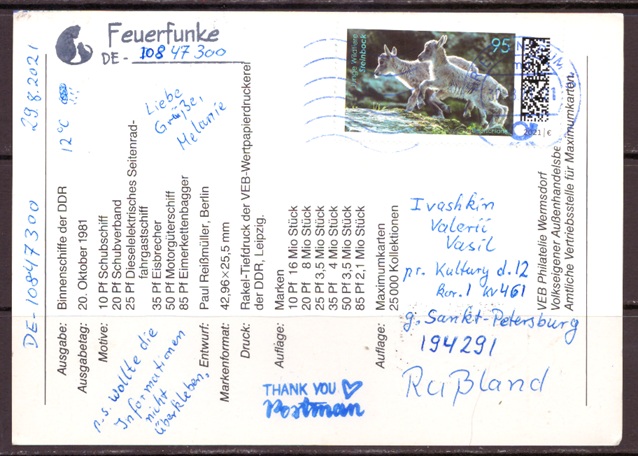 Feuerfunke
DE- 10847300
29.8.2021
DE-10847300
12°C
!!!
Liebe
Grüße,
Melanie
95
Steinbock
2021 | €
Ausgabe: Binnenschiffe der DDR
Ausgabetag: 20. Oktober 1981
Motive: 10 Pf Schubschiff
20 Pf Schubverband
25 Pf Dieselelektrisches Seitenrad-
fahrgastschiff
35 Pf Eisbrecher
50 Pf Motorgüterschiff
85 Pf Eimerkettenbagger
Entwurf: Paul Reißmüller, Berlin
Markenformat: 42,96×25,5 mm
Druck: Rakel-Tiefdruck der VEB-Wertpapierdruckerei
der DDR, Leipzig.
Auflage: Marken
10 Pf 16 Mio Stück
20 Pf 8 Mio Stück
25 Pf 3,5 Mio Stück
35 Pf 4 Mio Stück
50 Pf 3,5 Mio Stück
85 Pf 2,1 Mio Stück
Auflage: Maximumkarten
25000 Kollektionen
VEB Philatelie Wermsdorf
Volkseigener Außenhandelsbe
Amtliche Vertriebsstelle für Maximumkarten.
Ivashkin
Valerii
Vasil
pr. Kultury d.12
kor.1 kv461
g. Sankt-Petersburg
194291
Rußland
p.s. wollte die
Informationen
nicht
überkleben.
THANK YOU
Postman